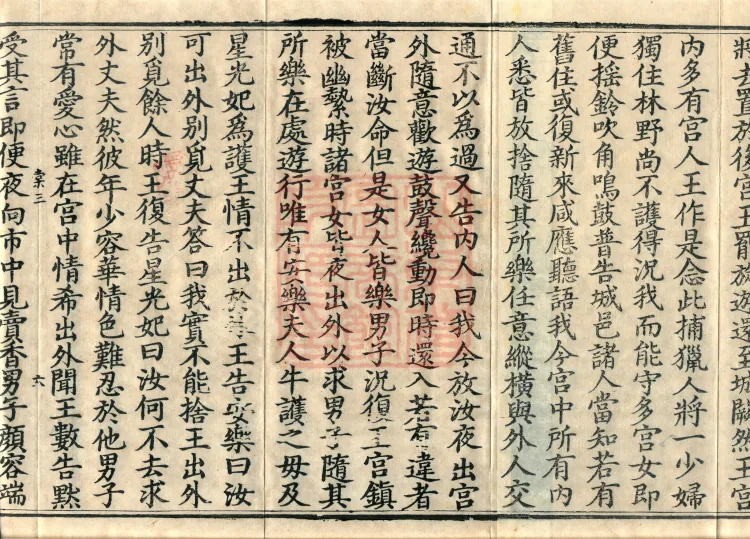 將去置於後宮王罷遊還至城闕然王宮
內多有宮人王作是念此捕獵人將一少婦
獨住林野尚不護得況我而能守多宮女即
便搖鈴吹角鳴鼓普告城邑諸人當知若有
舊住或復新來咸應聽語我今宮中所有內
人悉皆放捨隨其所樂任意縱橫與外人交
通不以為過又告內人曰我今放汝夜出宮
外隨意歡遊鼓聲纔動即時還入若有違者
當斷汝命但是女人皆樂男子況復王宮鎮
被幽縶時諸宮女皆夜出外以求男子隨其
所樂在處遊行唯有安樂夫人牛護之母及
星光妃為護王情不出於外王告安樂曰汝
可出外別覓丈夫答曰我實不能捨王出外
別覓餘人時王復告星光妃曰汝何不去求
外丈夫然彼年少容華情色難忍於他男子
常有愛心雖在宮中情希出外聞王數告默
棠三
六
受其言即便夜向市中見賣香男子顏容端